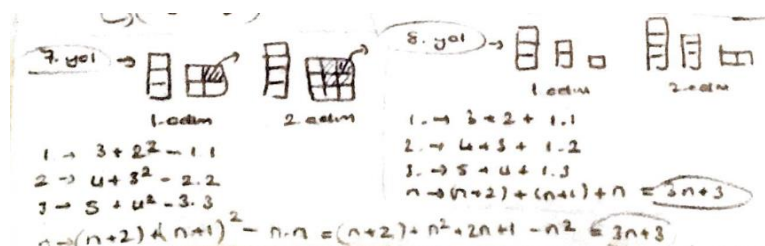 7. yol →
1. adım 2. adım
1 → 3 + 2² - 1.1
2 → 4 + 3² - 2.2
3 → 5 + 4² - 3.3
n → (n+2) + (n+1)² - n.n = (n+2) + n² + 2n + 1 - n² = 3n+3
8. yol →
1. adım 2. adım
1. → 3 + 2 + 1.1
2. → 4 + 3 + 1.2
3. → 5 + 4 + 1.3
n → (n+2) + (n+1) + n = 3n+3